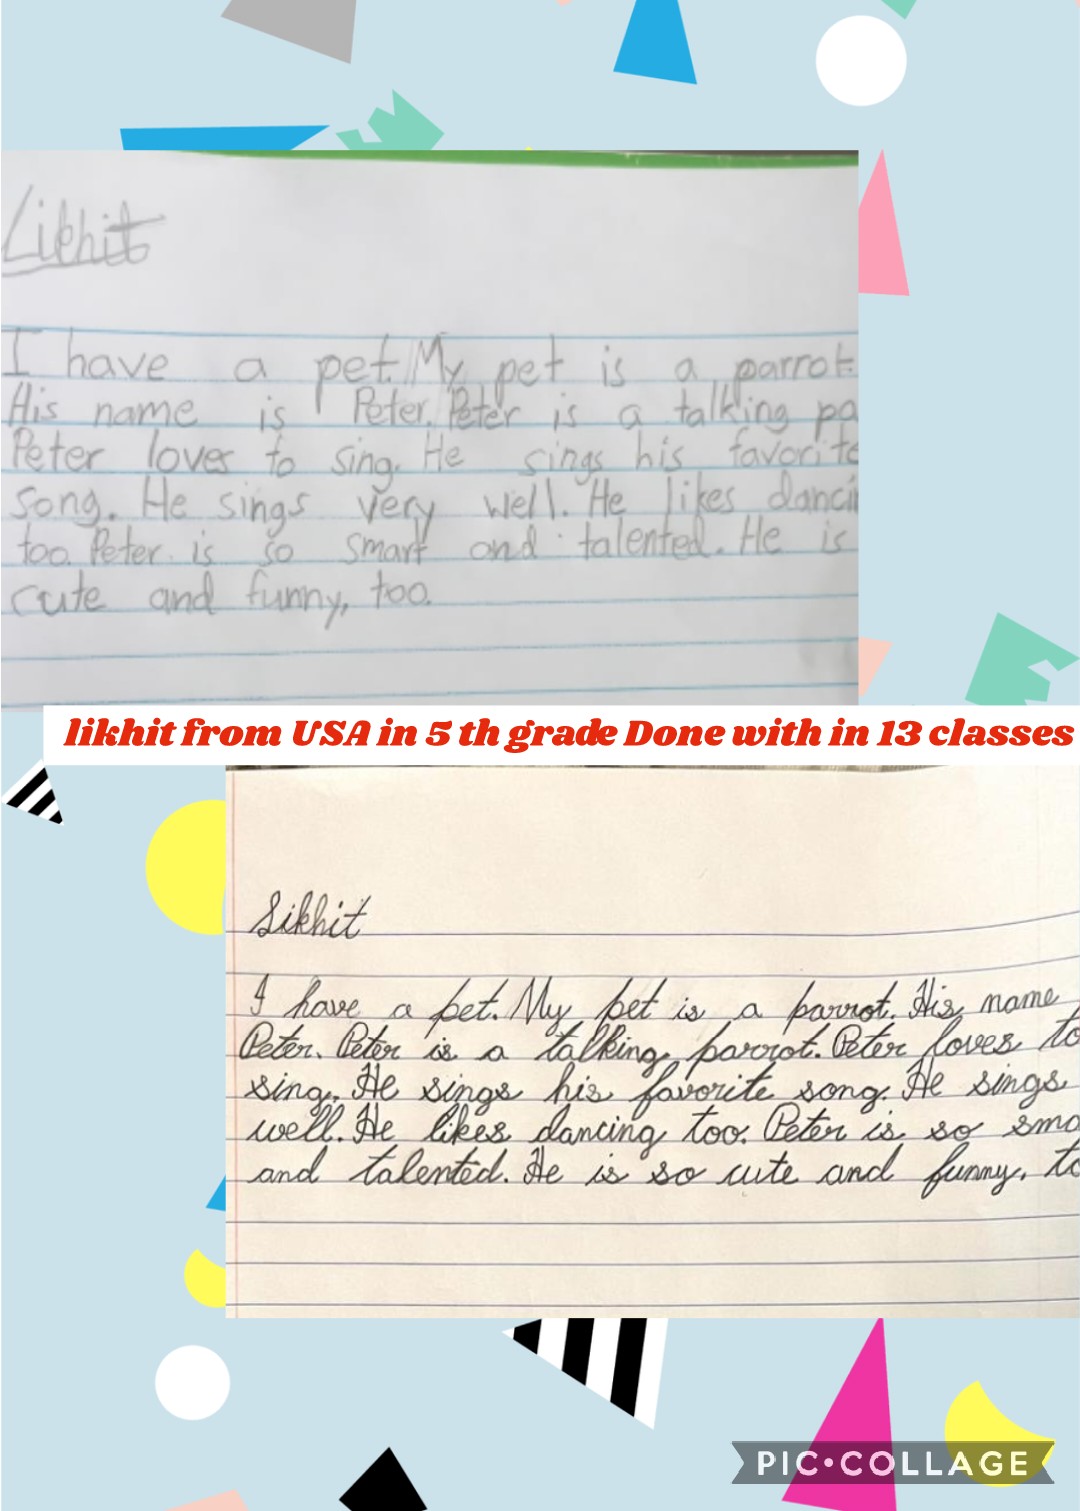 Likhit
I have a pet. My pet is a parrot.
His name is Peter. Peter is a talking pa
Peter loves to sing. He sings his favorite
song. He sings very well. He likes danci
too. Peter is so smart and talented. He is
cute and funny, too.
likhit from USA in 5 th grade Done with in 13 classes
Likhit
I have a pet. My pet is a parrot. His name
Peter. Peter is a talking parrot. Peter loves to
sing. He sings his favorite song. He sings
well. He likes dancing too. Peter is so sma
and talented. He is so cute and funny, to
PIC•COLLAGE